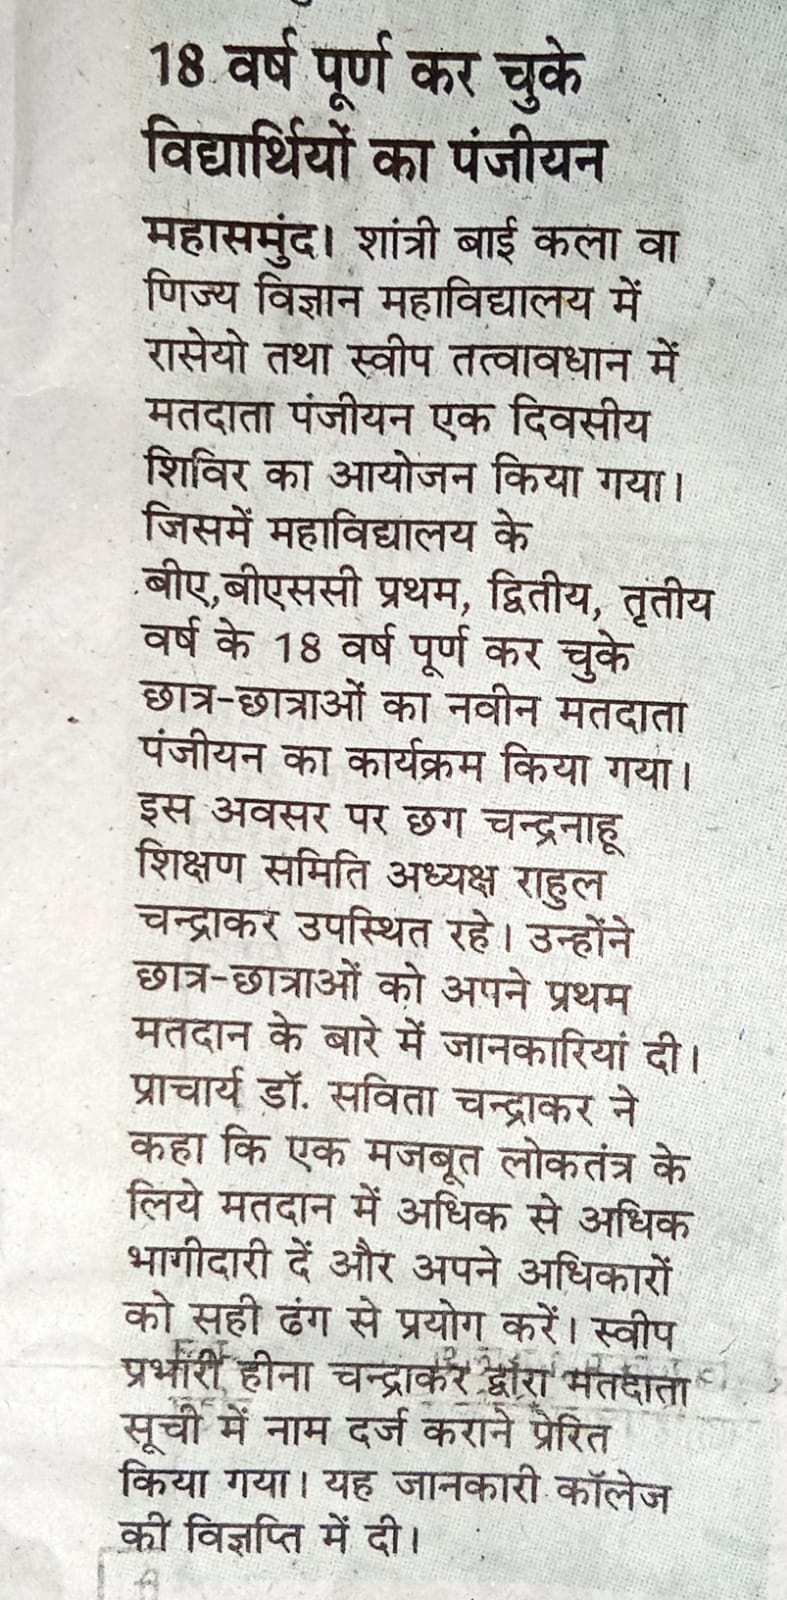 18 वर्ष पूर्ण कर चुके
विद्यार्थियों का पंजीयन
महासमुंद। शांत्री बाई कला वा
णिज्य विज्ञान महाविद्यालय में
रासेयो तथा स्वीप तत्वावधान में
मतदाता पंजीयन एक दिवसीय
शिविर का आयोजन किया गया।
जिसमें महाविद्यालय के
बीए,बीएससी प्रथम, द्वितीय, तृतीय
वर्ष के 18 वर्ष पूर्ण कर चुके
छात्र-छात्राओं का नवीन मतदाता
पंजीयन का कार्यक्रम किया गया।
इस अवसर पर छग चन्द्रनाहू
शिक्षण समिति अध्यक्ष राहुल
चन्द्राकर उपस्थित रहे। उन्होंने
छात्र-छात्राओं को अपने प्रथम
मतदान के बारे में जानकारियां दी।
प्राचार्य डॉ. सविता चन्द्राकर ने
कहा कि एक मजबूत लोकतंत्र के
लिये मतदान में अधिक से अधिक
भागीदारी दें और अपने अधिकारों
को सही ढंग से प्रयोग करें। स्वीप
प्रभारी हीना चन्द्राकर द्वारा मतदाता
सूची में नाम दर्ज कराने प्रेरित
किया गया। यह जानकारी कॉलेज
की विज्ञप्ति में दी।